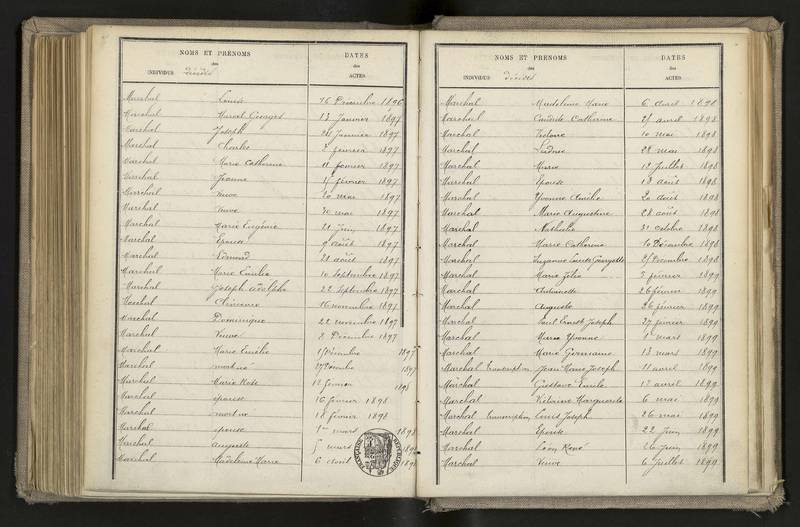 NOMS ET PRÉNOMS
des
INDIVIDUS Décédés
DATES
des
ACTES
Marchal Louise 16 Décembre 1896
Marchal Marcel Georges 13 Janvier 1897
Marchal Joseph Janvier 1897
Marchal Charles 2 février 1897
Marchal Marie Catherine 11 février 1897
Marchal Jeanne février 1897
Marchal Veuve 20 mai 1897
Marchal Veuve 30 mai 1897
Marchal Marie Eugénie 21 Juin 1897
Marchal Epouse 9 août 1897
Marchal Edmond 28 août 1897
Marchal Marie Emilie 10 Septembre 1897
Marchal Joseph Adolphe 22 Septembre 1897
Marchal 16 novembre 1897
Marchal Dominique 22 novembre 1897
Marchal Veuve 8 Décembre 1897
Marchal Marie Emélie Décembre 1897
Marchal mort né Décembre 1897
Marchal Marie Rose 12 février 1898
Marchal épouse 16 février 1898
Marchal mort né 18 février 1898
Marchal épouse 1er mars 1898
Marchal Auguste 5 mars 1898
Marchal Madeleine Marie 6 avril 1898
NOMS ET PRÉNOMS
des
INDIVIDUS Décédés
DATES
des
ACTES
Marchal Madeleine Marie 6 avril 1898
Marchal Candide Catherine avril 1898
Marchal Victoire 10 mai 1898
Marchal 28 mai 1898
Marchal Marie 12 Juillet 1898
Marchal Epouse 18 août 1898
Marchal Yvonne Amélie 20 août 1898
Marchal Marie Augustine 28 août 1898
Marchal Nathalie 31 octobre 1898
Marchal Marie Catherine 10 Décembre 1898
Marchal Suzanne Louise Georgette Décembre 1898
Marchal Marie Zélie 3 février 1899
Marchal Antoinette 26 février 1899
Marchal Auguste 26 février 1899
Marchal Paul Ernest Joseph 27 février 1899
Marchal Marie Yvonne 1er mars 1899
Marchal Marie Germaine 13 mars 1899
Marchal transcription Jean Marie Joseph 11 avril 1899
Marchal Gustave Emile 17 avril 1899
Marchal Victorine Marguerite 6 mai 1899
Marchal transcription Louis Joseph 26 mai 1899
Marchal Epouse 22 Juin 1899
Marchal Léon René 26 Juin 1899
Marchal Veuve 6 Juillet 1899